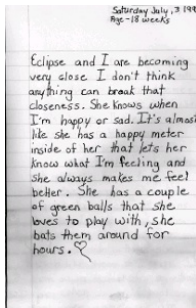 Saturday July, 3 199
Age - 18 weeks
Eclipse and I are becoming
very close I don't think
anything can break that
closeness. She knows when
I'm happy or sad. It's almost
like she has a happy meter
inside of her that lets her
know what I'm feeling and
she always makes me feel
better. She has a couple
of green balls that she
loves to play with, she
bats them around for
hours.